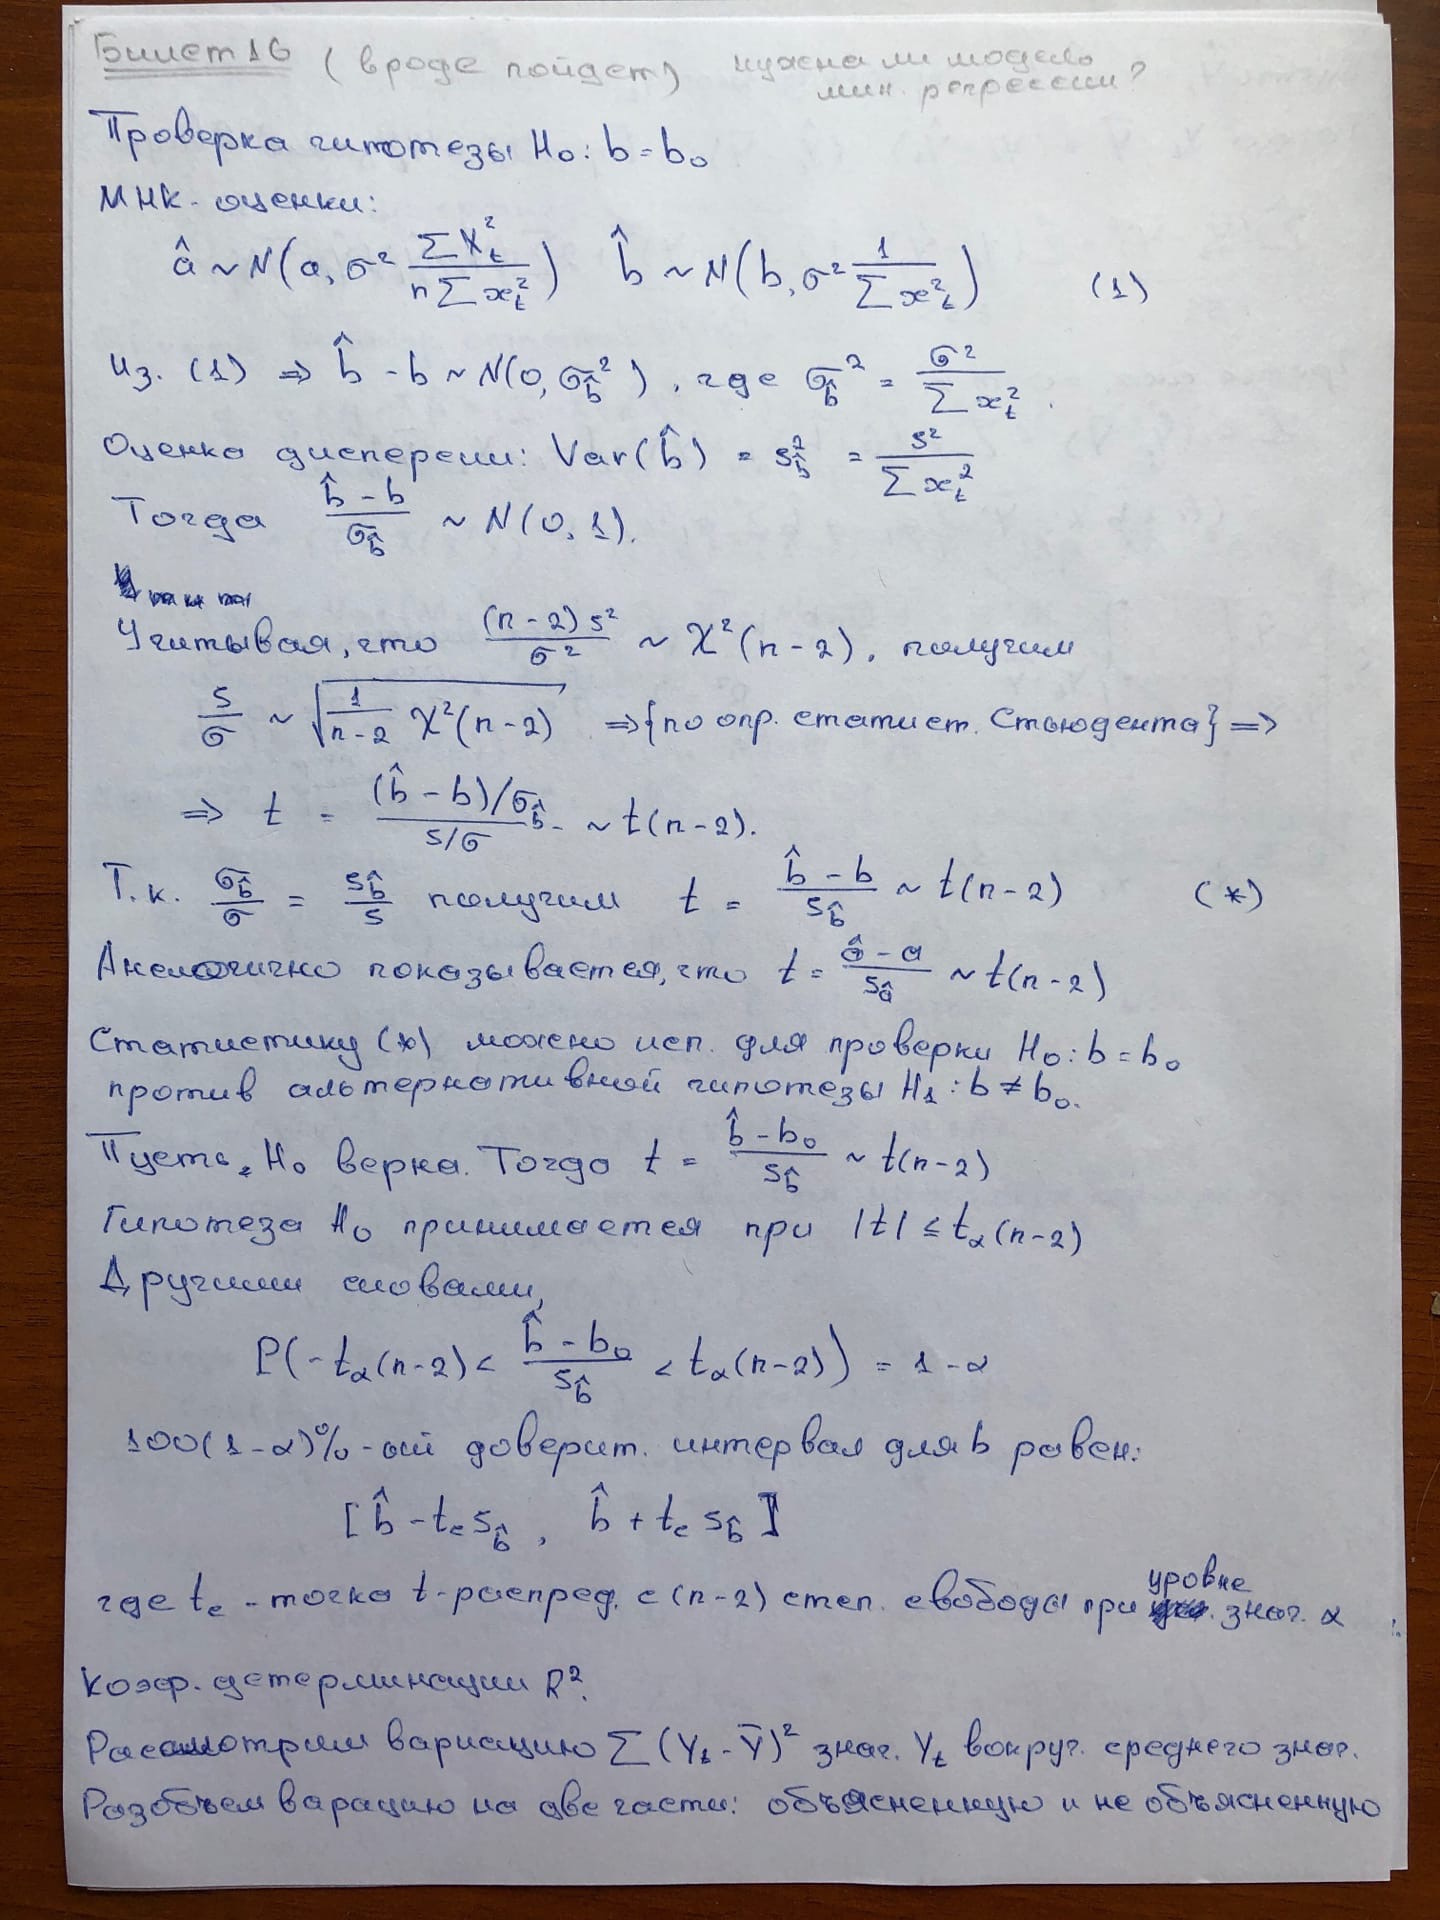 Билет 16 (вроде пойдет) нужна ли модель
лин. регрессии?
Проверка гипотезы H₀: b = b₀
МНК-оценки:
â ~ N(a, σ² ∑X²ₜ / n∑x²ₜ) b̂ ~ N(b, σ² 1/∑x²ₜ) (1)
Из. (1) ⇒ b̂ - b ~ N(0, σ_b̂²), где σ_b̂² = σ²/∑xₜ².
Оценка дисперсии: Var(b̂) = s²_b̂ = s²/∑xₜ²
Тогда (b̂ - b)/σ_b̂ ~ N(0, 1).
Учитывая, что (n-2)s²/σ² ~ χ²(n-2), получим
s/σ ~ √(1/(n-2) χ²(n-2)) ⇒ {по опр. статист. Стьюдента} ⇒
⇒ t = ((b̂ - b)/σ_b̂)/(s/σ) ~ t(n-2).
Т.к. σ_b̂/σ = s_b̂/s получим t = (b̂ - b)/s_b̂ ~ t(n-2) (*)
Аналогично показывается, что t = (â - a)/s_â ~ t(n-2)
Статистику (*) можно исп. для проверки H₀: b = b₀
против альтернативной гипотезы H₁: b ≠ b₀.
Пусть H₀ верна. Тогда t = (b̂ - b₀)/s_b̂ ~ t(n-2)
Гипотеза H₀ принимается при |t| ≤ t_α(n-2)
Другими словами,
P(-t_α(n-2) < (b̂ - b₀)/s_b̂ < t_α(n-2)) = 1 - α
100(1-α)%-ый доверит. интервал для b равен:
[b̂ - t_c s_b̂, b̂ + t_c s_b̂]
где t_c - точка t-распред. с (n-2) степ. свободы при уровне знач. α
Коэф. детерминации R².
Рассмотрим вариацию ∑(Yₜ - Ȳ)² знач. Yₜ вокруг. среднего знач.
Разобъем варацию на две части: объясненную и не объясненную